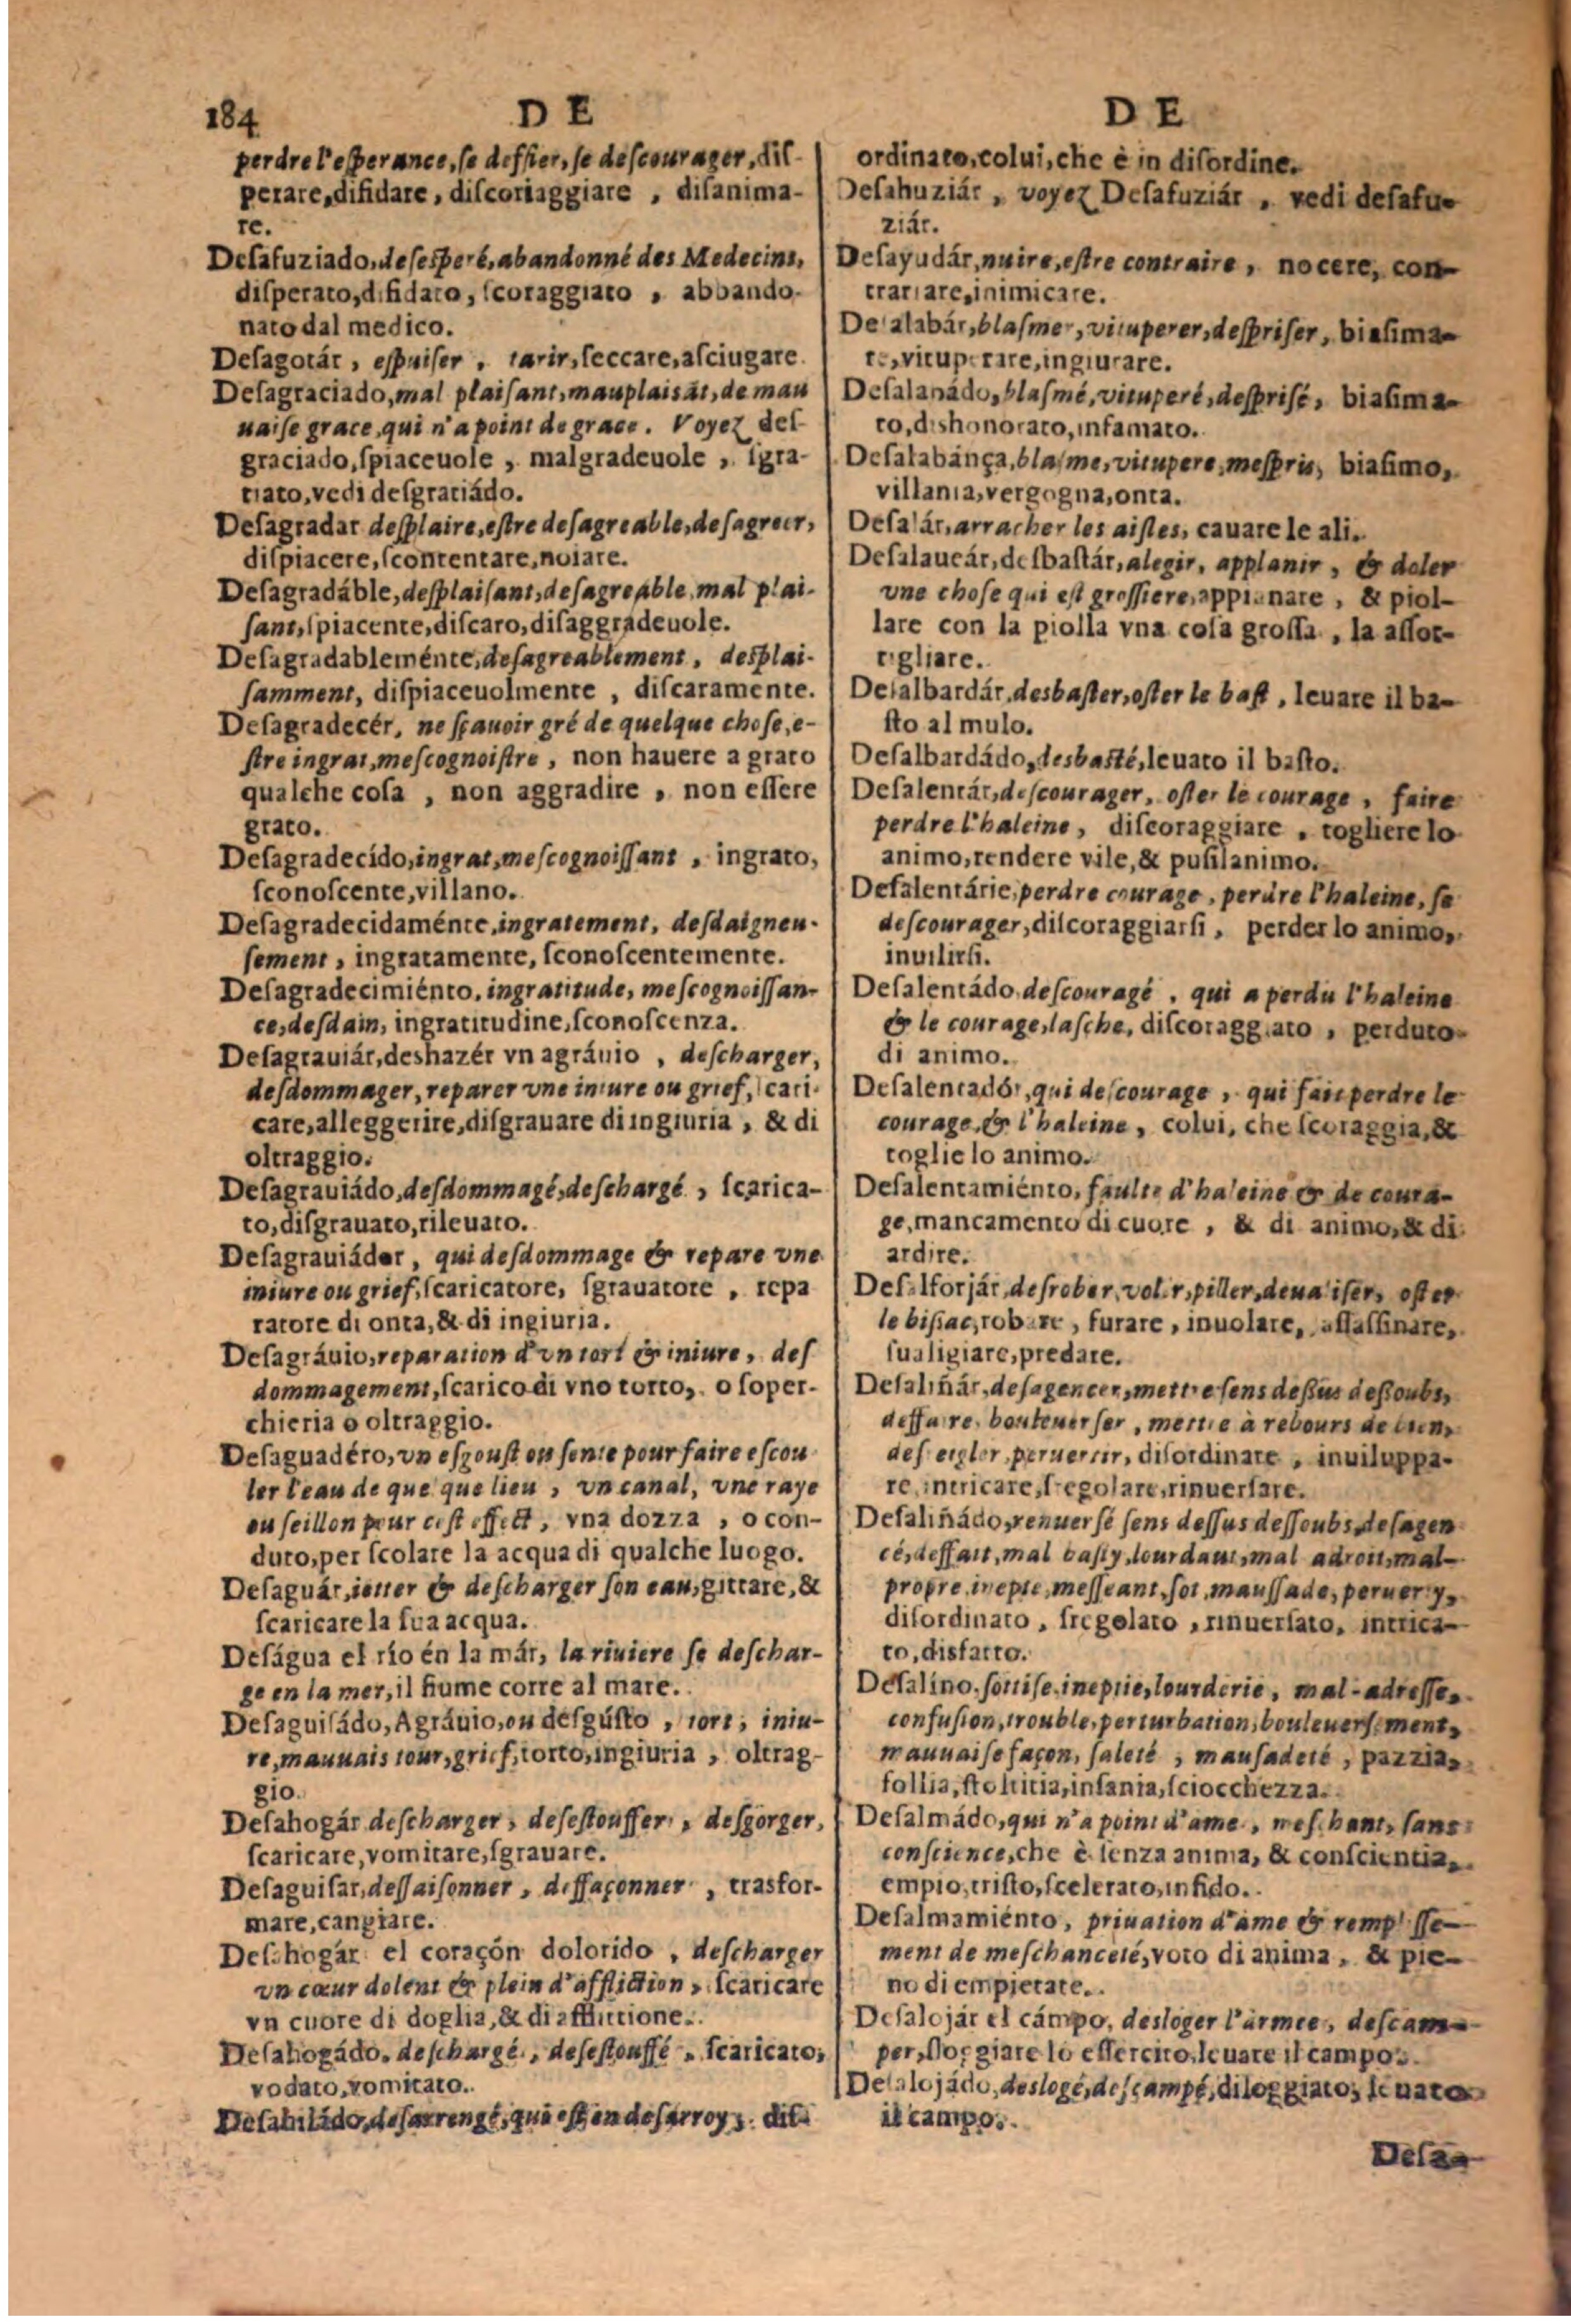 184 DE DE
perdre l'eſperance, ſe deffier, ſe deſcourager, diſ-
perare, difidare, diſcoriaggiare, diſanima-
re.
Deſafuziado, deſesperé, abandonné des Medecins,
diſperato, difidato, ſcoraggiato, abbando-
nato dal medico.
Deſagotár, eſpuiſer, tarir, ſeccare, aſciugare
Deſagraciado, mal plaiſant, mauplaisāt, de mau
uaiſe grace, qui n'a point de grace. Voyez deſ-
graciado, ſpiaceuole, malgradeuole, ſgra-
tiato, vedi deſgratiádo.
Deſagradar deſplaire, eſtre deſagreable, deſagreer,
diſpiacere, ſcontentare, noiare.
Deſagradáble, deſplaiſant, deſagreable, mal plai-
ſant, ſpiacente, diſcaro, diſaggradeuole.
Deſagradableménte, deſagreablement, deſplai-
ſamment, diſpiaceuolmente, diſcaramente.
Deſagradecér, ne ſçauoir gré de quelque choſe, e-
ſtre ingrat, meſcognoiſtre, non hauere a grato
qualche coſa, non aggradire, non eſſere
grato.
Deſagradecído, ingrat, meſcognoiſſant, ingrato,
ſconoſcente, villano.
Deſagradecidaménte, ingratement, deſdaigneu-
ſement, ingratamente, ſconoſcentemente.
Deſagradecimiénto, ingratitude, meſcognoiſſan-
ce, deſdain, ingratitudine, ſconoſcenza.
Deſagrauiár, deshazér vn agráuio, deſcharger,
deſdommager, reparer vne iniure ou grief, ſcari-
care, alleggerire, diſgrauare di ingiuria, & di
oltraggio.
Deſagrauiádo, deſdommagé, deſchargé, ſcarica-
to, diſgrauato, rileuato.
Deſagrauiádor, qui deſdommage & repare vne
iniure ou grief, ſcaricatore, ſgrauatore, repa
ratore di onta, & di ingiuria.
Deſagráuio, reparation d'vn tort & iniure, deſ
dommagement, ſcarico di vno torto, o ſoper-
chieria o oltraggio.
Deſaguadéro, vn eſgouſt ou ſente pour faire eſcou
ler l'eau de quelque lieu, vn canal, vne raye
ou ſeillon pour ceſt effect, vna dozza, o con-
duto, per ſcolare la acqua di qualche luogo.
Deſaguár, ietter & deſcharger ſon eau, gittare, &
ſcaricare la ſua acqua.
Deſágua el río én la már, la riuiere ſe deſchar-
ge en la mer, il fiume corre al mare.
Deſaguiſádo, Agráuio, ou deſgúſto, tort, iniu-
re, mauuais tour, grief, torto, ingiuria, oltrag-
gio.
Deſahogár deſcharger, deſeſtouffer, deſgorger,
ſcaricare, vomitare, ſgrauare.
Deſaguiſar, deſſaiſonner, deffaçonner, trasfor-
mare, cangiare.
Deſahogár el coraçón dolorido, deſcharger
vn cœur dolent & plein d'affliction, ſcaricare
vn cuore di doglia, & di afflittione.
Deſahogádo, deſchargé, deſeſtouffé, ſcaricato,
vodato, vomitato.
Deſahiládo, deſarrengé, qui eſt en deſarroy, diſ-
ordinato, colui, che è in diſordine.
Deſahuziár, voyez Deſafuziár, vedi deſafu-
ziár.
Deſayudár, nuire, eſtre contraire, nocere, con-
trariare, inimicare.
Deſalabár, blaſmer, vituperer, deſpriſer, biaſima-
re, vituperare, ingiurare.
Deſalabádo, blaſmé, vituperé, deſpriſé, biaſima-
to, dishonorato, infamato.
Deſalabánça, blaſme, vitupere, meſpris, biaſimo,
villania, vergogna, onta.
Deſalár, arracher les aiſles, cauare le ali.
Deſalaueár, desbaſtár, alegir, applanir, & doler
vne choſe qui eſt groſſiere, appianare, & piol-
lare con la piolla vna coſa groſſa, la aſſot-
tigliare.
Deſalbardár, desbaſter, oſter le baſt, leuare il ba-
ſto al mulo.
Deſalbardádo, desbaſté, leuato il baſto.
Deſalentár, deſcourager, oſter le courage, faire
perdre l'haleine, diſcoraggiare, togliere lo
animo, rendere vile, & puſilanimo.
Deſalentárſe, perdre courage, perdre l'haleine, ſe
deſcourager, diſcoraggiarſi, perder lo animo,
inuilirſi.
Deſalentádo, deſcouragé, qui a perdu l'haleine
& le courage, laſche, diſcoraggiato, perduto
di animo.
Deſalentadór, qui deſcourage, qui fait perdre le
courage, & l'haleine, colui, che ſcoraggia, &
toglie lo animo.
Deſalentamiénto, faulte d'haleine & de coura-
ge, mancamento di cuore, & di animo, & di
ardire.
Deſalforjár, deſrober, voler, piller, deualiſer, oſter
le biſſac, robare, furare, inuolare, aſſaſſinare,
ſualigiare, predare.
Deſaliñár, deſagencer, mettre ſens deſſus deſſoubs,
deffaire, bouleuerſer, mettre à rebours de bien,
deſreigler, peruertir, diſordinare, inuiluppa-
re, intricare, ſregolare, rinuerſare.
Deſaliñádo, renuerſé ſens deſſus deſſoubs, deſagen
cé, deffait, mal baſty, lourdaut, mal adroit, mal-
propre, inepte, meſſeant, ſot, mauſſade, peruerty,
diſordinato, ſregolato, rinuerſato, intrica-
to, disfatto.
Deſalíno, ſottiſe, ineptie, lourderie, mal-adreſſe,
confuſion, trouble, perturbation, bouleuerſement,
mauuaiſe façon, ſaleté, mauſadeté, pazzia,
follia, ſtoltitia, inſania, ſciocchezza.
Deſalmádo, qui n'a point d'ame, meſchant, ſans
conſcience, che è ſenza anima, & conſcientia,
empio, triſto, ſcelerato, infido.
Deſalmamiénto, priuation d'ame & rempliſſe-
ment de meſchanceté, voto di anima, & pie-
no di empietate.
Deſalojár el cámpo, desloger l'armee, deſcam-
per, ſloggiare lo eſſercito, leuare il campo.
Deſalojádo, deslogé, deſcampé, diloggiato, leuato
il campo.
Deſaa-